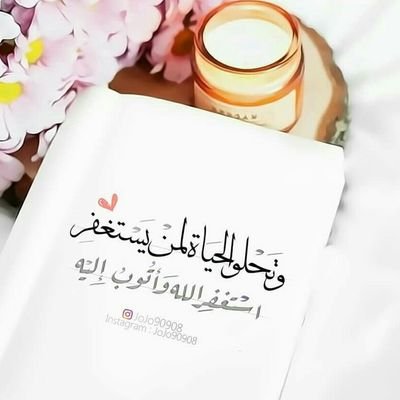 وَتَحْلو الحَيَاة لِمَنْ يَسْتَغفِر
اسْتَغفِر الله وَأتُوبُ إليْهِ
JoJo90908
Instagram : JoJo90908